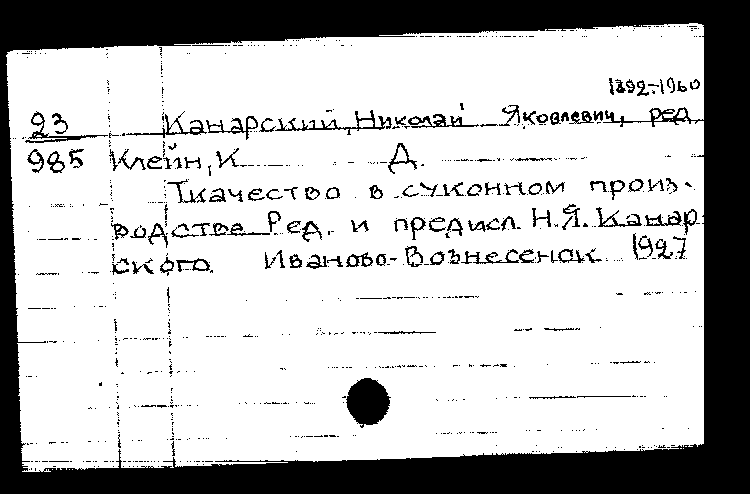 1892-1960
23 Канарский, Николай Яковлевич, ред.
985 Клейн, К Д.
Ткачество в суконном произ-
водстве Ред. и предисл. Н.Я. Канар-
ского. Иваново-Вознесенск 1927